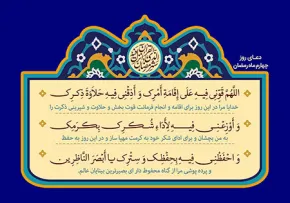 دعـای روز
چهارم ماه رمضان
اللَّهُمَّ قَوِّنِی فِیهِ عَلَی إِقَامَةِ أَمْرِکَ وَ أَذِقْنِی فِیهِ حَلاوَةَ ذِکْرِکَ
خدایا مرا در این روز برای اقامه و انجام فرمانت قوت بخش و حلاوت و شیرینی ذکرت را
وَ أَوْزِعْنِی فِیهِ لِأَدَاءِ شُکْرِکَ بِکَرَمِکَ
به من بچشان و برای ادای شکر خود به کرمت مهیا ساز و در این روز به حفظ
وَ احْفَظْنِی فِیهِ بِحِفْظِکَ وَ سِتْرِکَ یَا أَبْصَرَ النَّاظِرِینَ
و پرده پوشی مرا از گناه محفوظ دار ای بصیرترین بینایان عالم.